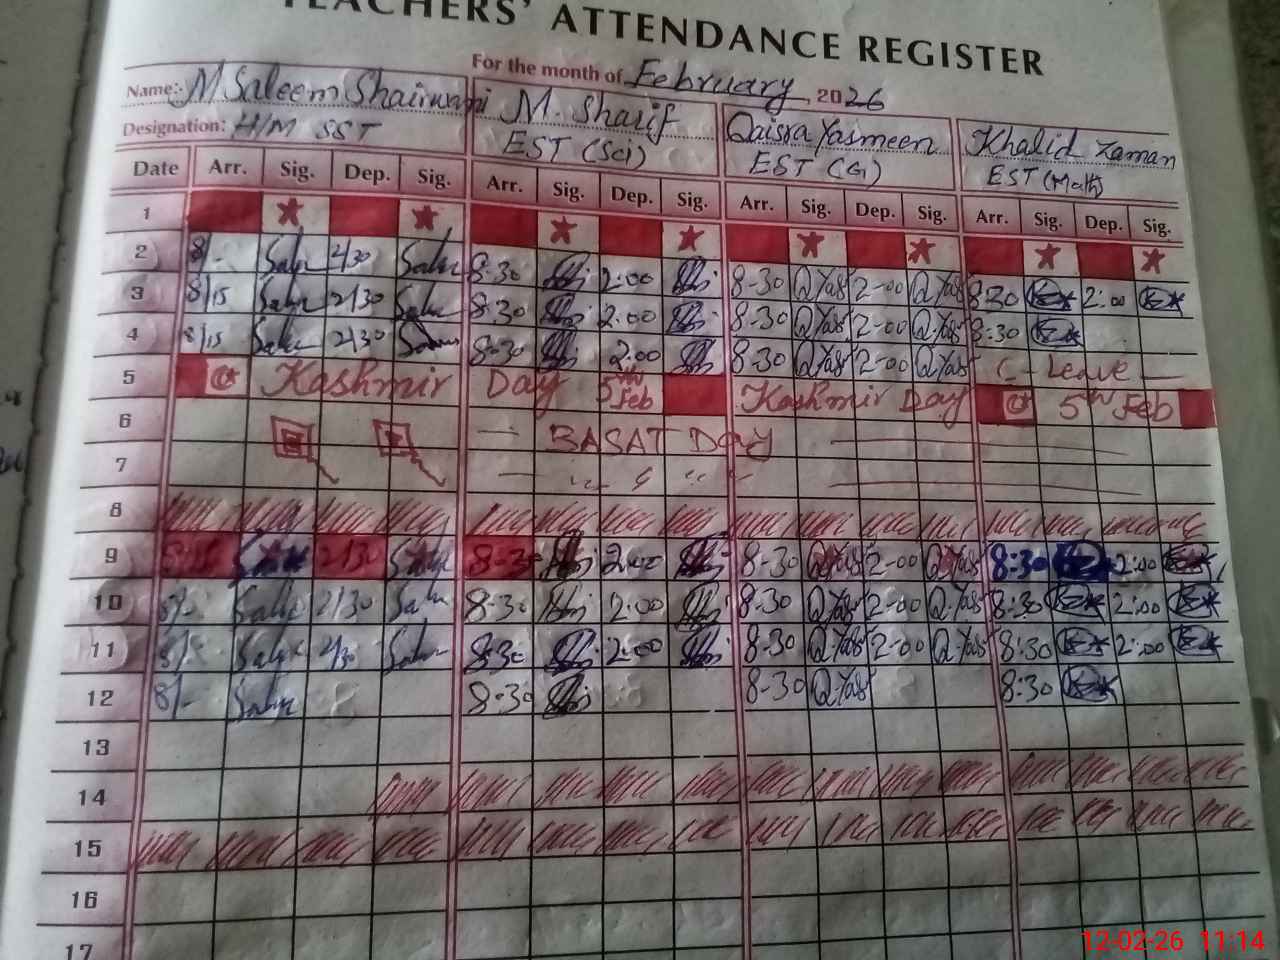 TEACHERS' ATTENDANCE REGISTER
For the month of February, 2026
Name:- M Saleem Shairwani M. Sharif Qaisra Yasmeen Khalid Zaman
Designation: H/M SST EST (Sci) EST (G) EST (Math)
Date Arr. Sig. Dep. Sig. Arr. Sig. Dep. Sig. Arr. Sig. Dep. Sig. Arr. Sig. Dep. Sig.
1
2 8/- 2/30 8-30 2:00 8-30 Q Yas 2-00 Q Yas 8:30 2:00
3 8/15 2/30 8:30 2:00 8-30 Q Yas 2-00 Q.Yas 8:30
4 8/15 2/30 8-30 2:00 8-30 Q Yas 2-00 Q Yas Leave
5 Kashmir Day 5th Feb Kashmir Day 5th Feb
6 BASAT Day
7
8
9 8/15 2/30 8-30 2:00 8-30 Q Yas 2-00 Q Yas 8:30 2:00
10 8/- 2/30 8-30 2:00 8-30 Q Yas 2-00 Q.Yas 8:30 2:00
11 8/- 2/30 8:30 2:00 8-30 Q.Yas 2-00 Q.Yas 8:30 2:00
12 8/- 8-30 8-30 Q.Yas 8:30
13
14
15
16
17
12-02-26 11:14